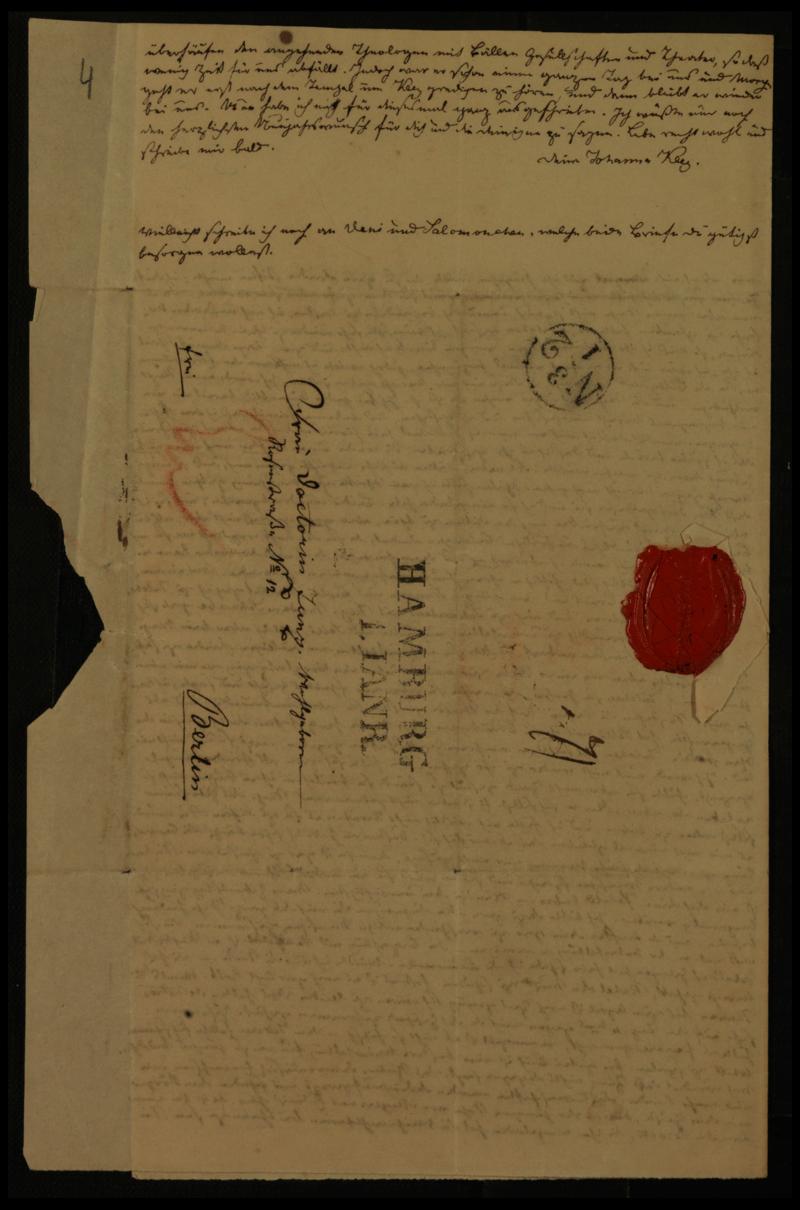 4
überhäufen den angehenden Theologen mit Bällen Gesellschaften und Theater, so daß
wenig Zeit für uns abfällt. Jedoch war er schon einen ganzen Tag bei uns und Morgen
geht er erst nach dem Tempel um Kley predigen zu hören, und dann bleibt er wieder
bei uns. Nun habe ich mich für diesesmal ganz ausgeschrieben. Ich wüßte nur noch
den herzlichsten Neujahrswunsch für dich und die deinigen zu sagen. Lebe recht wohl und
schreibe mir bald.
Deine Johanna Kley.
Vielleicht schreibe ich noch an und Salomonchen, welche beide Briefe du gütigst
besorgen wollest.
frei
Frau Doctorin Zunz. Wohlgeboren
Rosenstraße No 12
Berlin
HAMBURG
1. JANR.
N 1
3